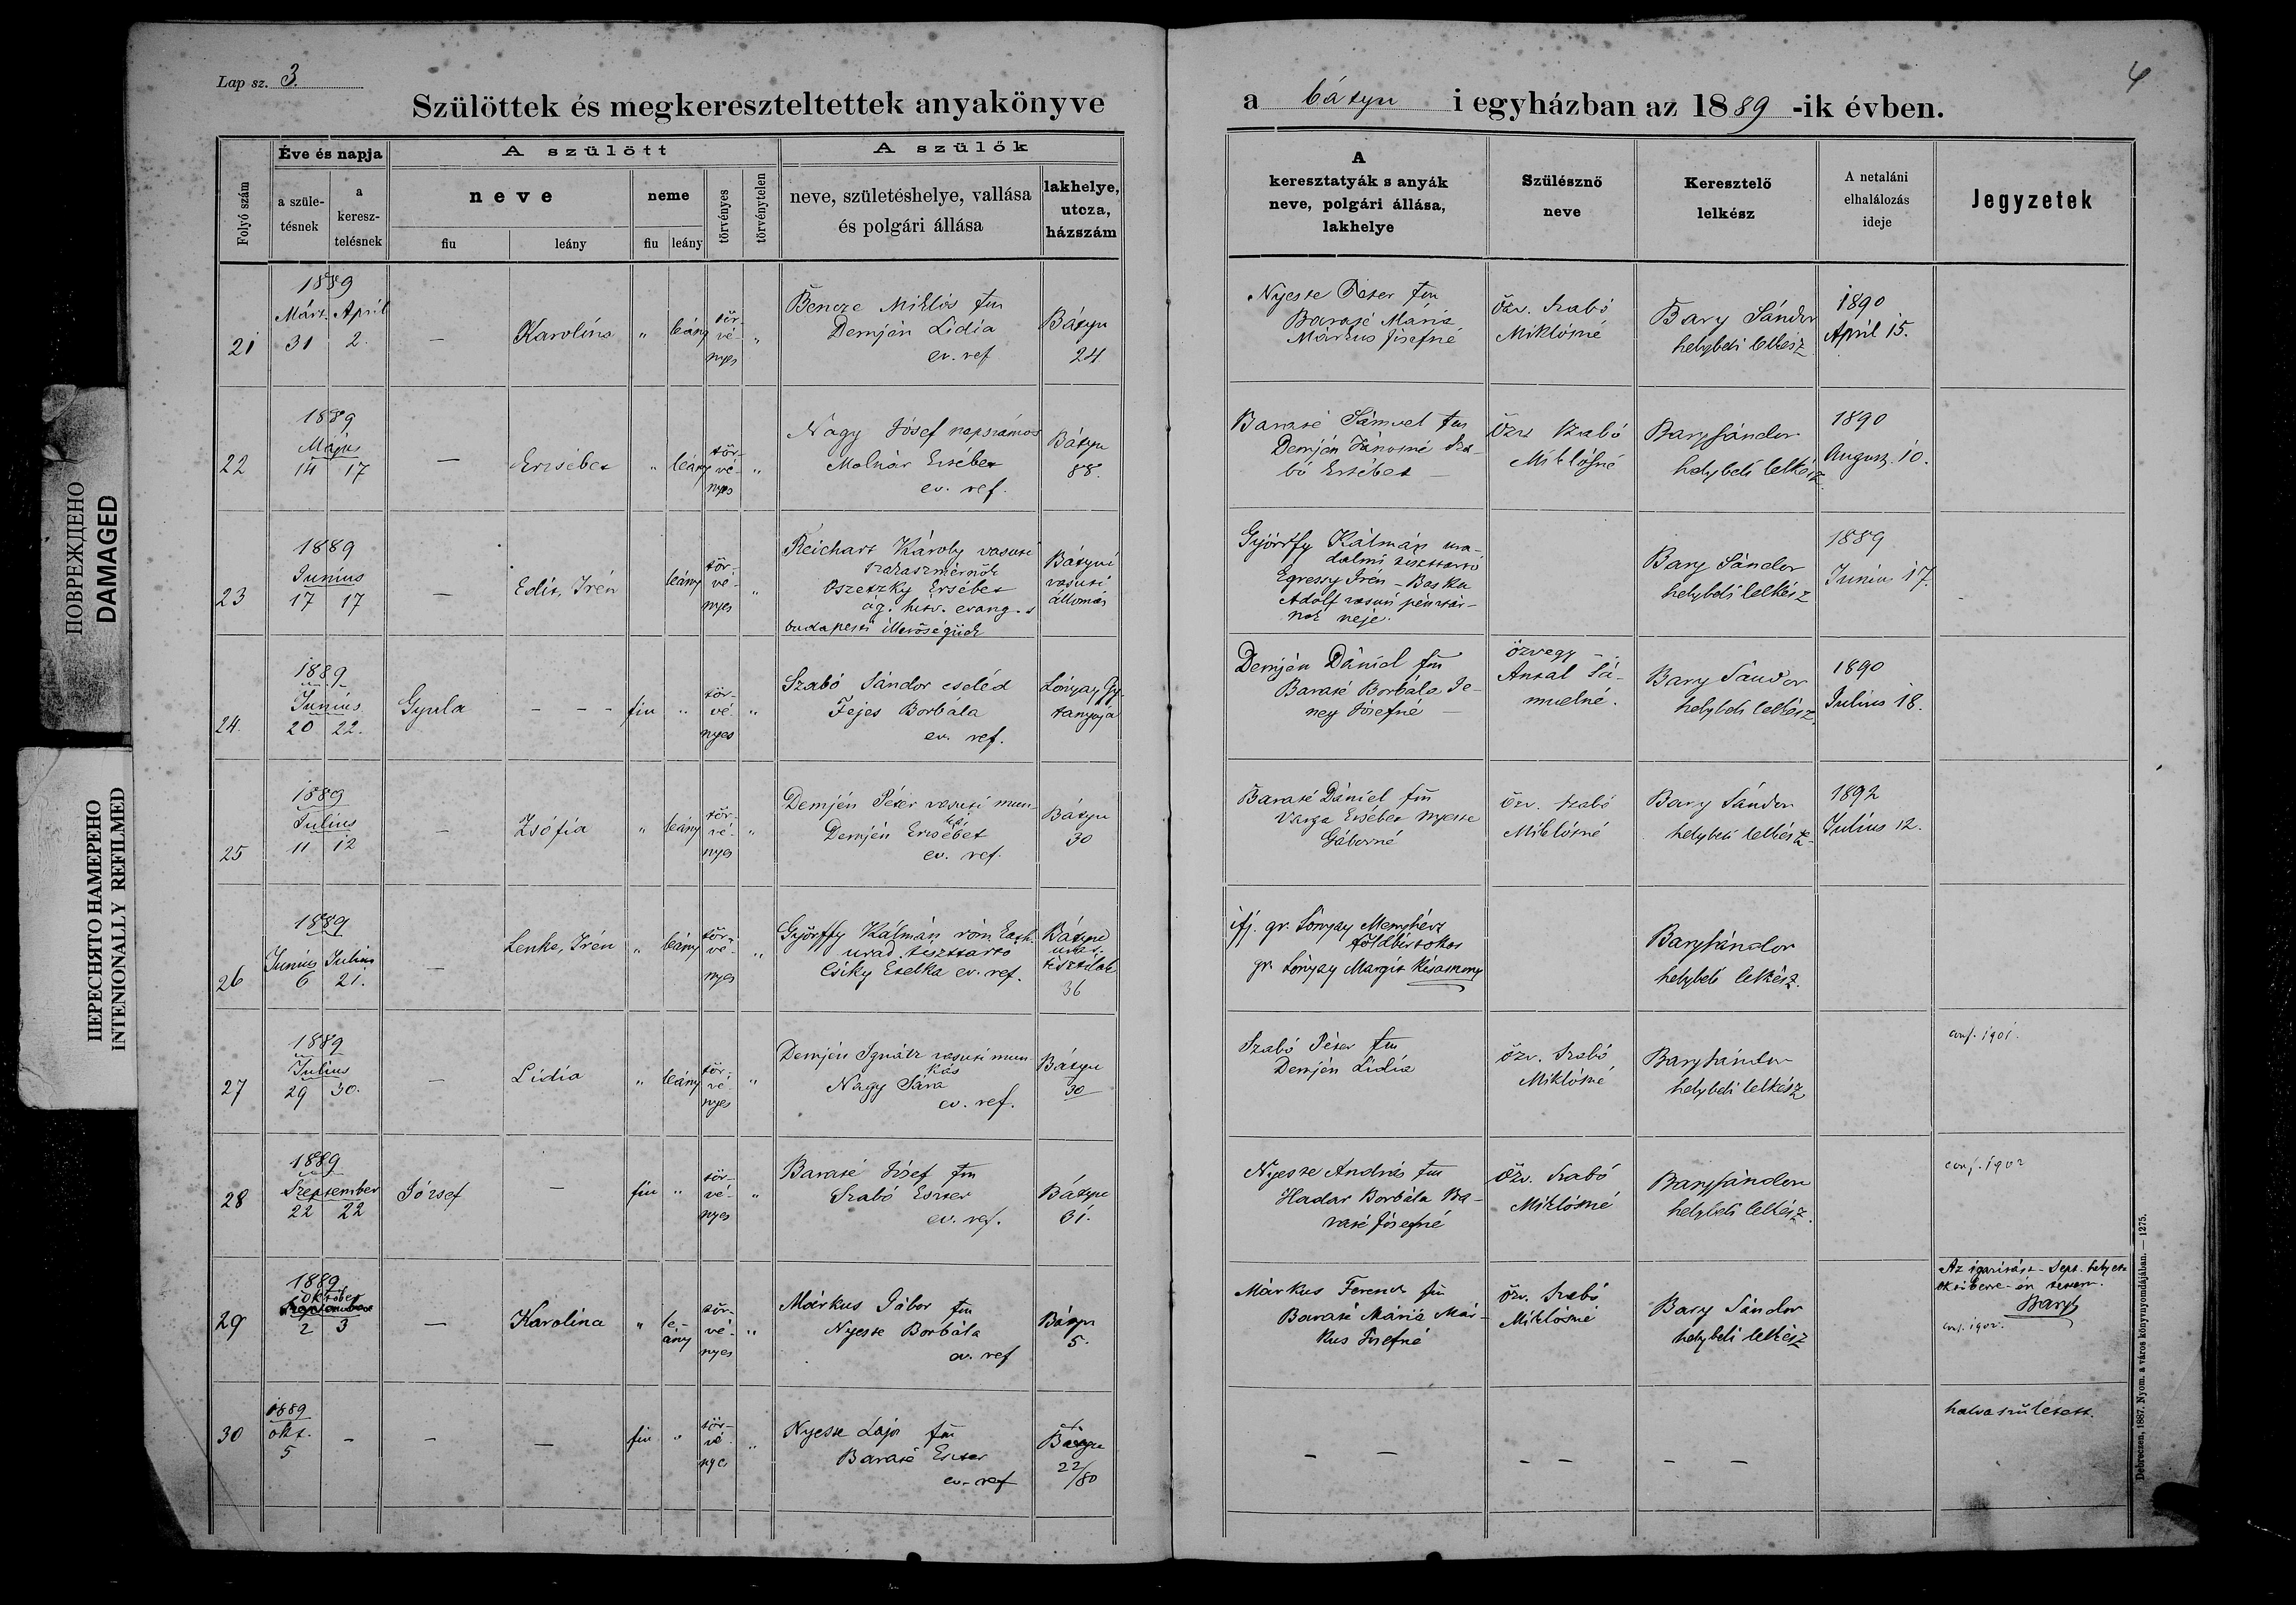 Lap sz. 3.
Szülöttek és megkereszteltettek anyakönyve
Folyó szám
Éve és napja
a szüle-
tésnek
a
keresz-
telésnek
A szülött
neve
fiu
leány
neme
fiu
leány
törvényes
törvénytelen
A szülők
neve, születéshelye, vallása
és polgári állása
lakhelye,
utcza,
házszám
21
1889
Márt. April
31 2.
—
Karolina
"
leány
tör-
vé-
nyes
"
Bencze Miklós fm
Demjén Lidia
ev. ref
Bátyu
24
22
1889
Május
14 17
—
Erzsébet
"
leány
tör-
vé-
nyes
"
Nagy József napszámos
Molnár Erzsébet
ev. ref.
Bátyu
88.
23
1889
Junius
17 17
—
Edit, Irén
leány
tör-
vé-
nyes
"
Reichart Károly vasuti
szakaszmérnök
Oszetzky Erzsébet
ág. hitv. evang. s
budapesti illetőségüek
Bátyui
vasuti
állomás
24.
1889
Junius
20 22.
Gyula
- - -
fiu
"
tör-
vé-
nyes
"
Szabó Sándor cseléd
Fejes Borbála
ev. ref.
Lónyay Gy.
tanyája
25
1889
Julius
11 12
—
Zsófia
"
leány
tör-
vé-
nyes
"
Demjén Péter vasuti mun-
kás
Demjén Erzsébet
ev. ref.
Bátyu
30
26
1889
Junius Julius
6 21.
—
Lenke, Irén
"
leány
tör-
vé-
nyes
"
Györffy Kálmán róm. kath.
urad. tiszttartó
Csiky Etelka ev. ref.
Bátyu
urad.
tisztilak
36
27
1889
Julius
29 30.
—
Lidia
"
leány
tör-
vé-
nyes
"
Demjén Ignátz vasuti mun-
kás
Nagy Sára
ev. ref.
Bátyu
30
28
1889
Szeptember
22 22
József
—
fiu
"
tör-
vé-
nyes
"
Baraté József fm
Szabó Eszter
ev. ref.
Bátyu
31.
29
1889
október
Szeptember
2 3
—
Karolina
"
le-
ány
tör-
vé-
nyes
"
Márkus Gábor fm
Nyeste Borbála
ev. ref
Bátyu
5.
30
1889
okt.
5
-
—
—
fiu
"
tör-
vé-
nyes
"
Nyeste Lajos fm
Baraté Eszter
ev. ref
Bátyu
22/80
4
a bátyu i egyházban az 1889 -ik évben.
A
keresztatyák s anyák
neve, polgári állása,
lakhelye
Szülésznő
neve
Keresztelő
lelkész
A netaláni
elhalálozás
ideje
Jegyzetek
Nyeste Péter fm
Baraté Mária
Márkus Józsefné
Özv. Szabó
Miklósné
Bary Sándor
helybeli lelkész
1890
April 15.
Baraté Sámuel fm
Demjén Jánosné Sza-
bó Erzsébet —
Özv. Szabó
Miklósné
Bary Sándor
helybeli lelkész
1890
August. 10.
Györffy Kálmán ura-
dalmi tiszttartó
Egressy Irén - Baska
Adolf vasuti pénztár-
nok neje.
Bary Sándor
helybeli lelkész
1889
Junius 17.
Demjén Dániel fm
Baraté Borbála Je-
ney Józsefné —
özvegy -
Antal Sá-
muelné.
Bary Sándor
helybeli lelkész
1890
Julius 18.
Baraté Dániel fm
Varga Erzsébet Nyeste
Gáborné
Özv. Szabó
Miklósné
Bary Sándor
helybeli lelkész
1892
Julius 12.
ifj. gr. Lónyay Menyhért
földbirtokos
gr. Lónyay Margit kisasszony
Bary Sándor
helybeli lelkész.
Szabó Péter fm
Demjén Lidia
özv. Szabó
Miklósné
Bary Sándor
helybeli lelkész
conf. 1901.
Nyeste András fm
Hadar Borbála Ba-
raté Józsefné
Özv. Szabó
Miklósné
Bary Sándor
helybeli lelkész.
conf. 1902
Márkus Ferencz fm
Baraté Mária Már-
kus Józsefné
Özv. Szabó
Miklósné
Bary Sándor
helybeli lelkész
Az igazitást Sept. helyett
októberre én tettem.
Bary
conf. 1902.
— —
— —
— —
halva született.
Debreczen, 1887. Nyom. a város könyvnyomdájában. — 1275.
ПОВРЕЖДЕНО
DAMAGED
ПЕРЕСНЯТО НАМЕРЕНО
INTENIONALLY REFILMED